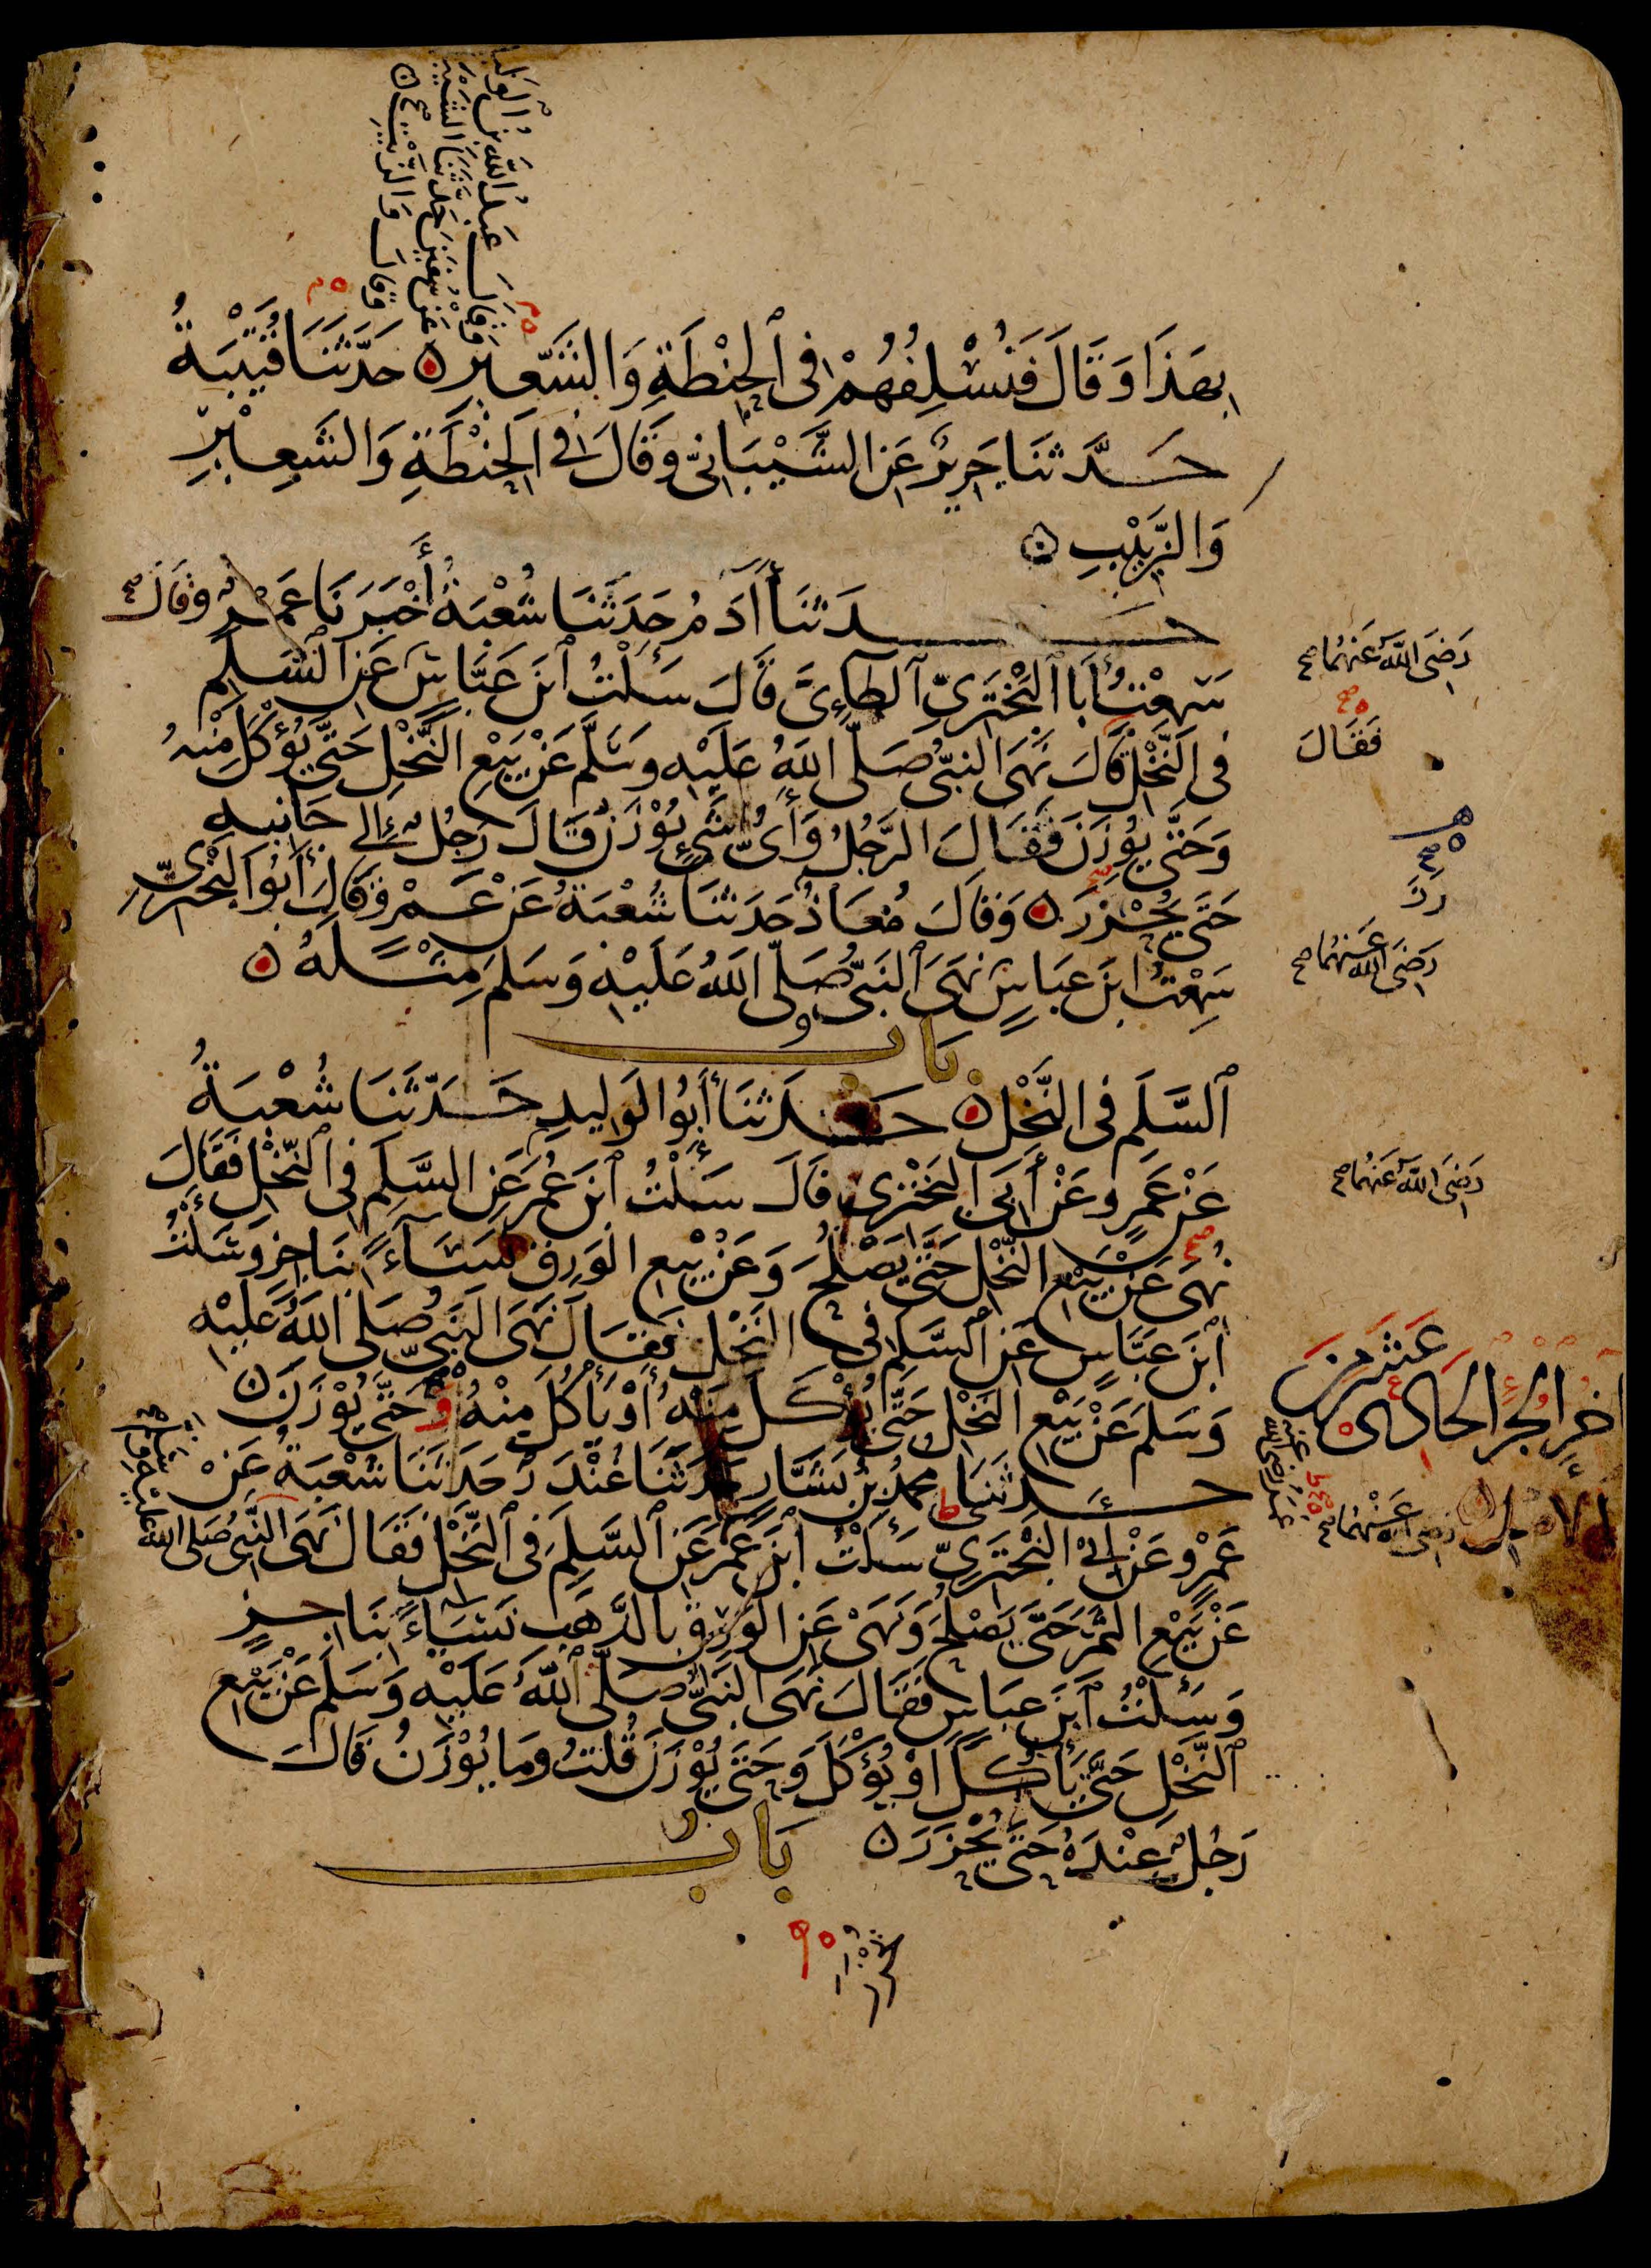 وقال عبد الله بن الوليد
عن سفين حدثنا الشيبـ
وقال والزيت صح
بِهَذَا وَقَالَ فَنُسْلِفُهُمْ فِى ٱلْحِنْطَةِ وَالشَّعِيرِ ۞ حَدَّثَنَا قُتَيْبَةُ
حَدَّثَنَا جَرِيرٌ عَنِ الشَّيْبَانِىِّ وَقَالَ فِى الْحِنْطَةِ وَالشَّعِيْرِ
وَالزَّبِيْبِ ۞
حَدثَنَا أَادَمُ حَدَثَنَا شُعْبَةُ أَخْبَرَنَا عَمْرٌو قَالَ
سَمِعْتُ أَبَا ٱلْبَخْتَرِىِّ ٱلطَاءِىَّ قَالَ سَئَلْتُ ٱبْنَ عَبَّاسٍ عَنِ ٱلسَّلَمِ
فِى النَّخْلِ قَالَ نَهَى النبىُّ صَلَّى اللهُ عَلَيْهِ وَسَلَّمَ عَنْ بَيْعِ النَّخْلِ حَتَّى يُؤْكَلَ مِنْهُ
وَحَتَّى يُوْزَنَ فَقَالَ الرَّجُلُ وَأَىُّ شَىْءٍ يُوْزَنُ قَالَ رَجُلٌ إِلى جَانِبِهِ
حَتَّى يُحْزَرَ ۞ وَقَالَ مُعَاذٌ حَدثَنَا شُعْبَةُ عَنْ عَمْرٍو قَالَ أَبُو الْبَخْتَرِىِّ
سَمِعْتُ ابْنَ عَبَاسٍ نَهَى ٱلنَبىُّ صَلَّى اللهُ عَلَيْهِ وَسَلمَ مِثْلَهُ ۞
بَابُ
ٱلسَّلَمِ فِى النَّخْلِ ۞ حَدثَنَا أَبُو الوَليدِ حَدَّثَنَا شُعْبَةُ
عَنْ عَمْرٍو عَنْ أَبِى الْبَخْتَرِىِّ قَالَ سَئَلْتُ ٱبْنَ عُمَرَ عَنِ السَّلَمِ فِى ٱلنَّخْلِ فَقَالَ
نُهِىَ عَنْ بَيْعِ النَّخْلِ حَتَّى يَصْلُحَ وَعَنْ بَيْعِ الوَرِقِ نَسَاءً بِنَاجِزٍ وَسَئَلْتُ
ٱبْنَ عَبَّاسٍ عَنِ ٱلسَّلَمِ فِى النَّخْلِ فَقَالَ نَهَى النَبىُّ صَلى اللهُ عَلَيْهِ
وَسَلمَ عَنْ بَيْعِ النَخْلِ حَتَّى يُؤْكَلَ مِنْهُ أَوْ يَأْكُلَ مِنْهُ وَحَتَّى يُوْزَنَ ۞
حَدثَنَا محمدُ بنُ بَشَّارٍ حَدثَنَا غُنْدَرٌ حَدثَنَا شُعْبَةُ عَنْ
عَمْرٍو عَنْ أَبِى الْبَخْتَرِىِّ سَئَلْتُ ٱبْنَ عُمَرَ عَنِ ٱلسَّلَمِ فِى ٱلنَّخْلِ فَقَالَ نَهَى النَّبىُّ صَلى الله عليه وسلم
عَنْ بَيْعِ الثَّمَرِ حَتَّى يَصْلُحَ وَنَهَى عَنِ الوَرِقِ بِالذَّهَبِ نَسَاءً بِنَاجِزٍ
وَسَئَلْتُ ٱبْنَ عَبَاسٍ فَقَالَ نَهَى النَبىُّ صَلَّى ٱللهُ عَلَيْهِ وَسَلمَ عَنْ بَيْعِ
ٱلنَّخْلِ حَتَّى يَأْكُلَ اَوْ يُؤْكَلَ وَحَتَّى يُوْزَنَ قُلتُ وَمَا يُوْزَنُ قَالَ
رَجُلٌ عِنْدَهُ حَتَّى يُحْزَرَ ۞ بَابُ
رَضِىَ اللهُ عَنْهُمَا صح
فَقَالَ
رَزَ
رَضِىَ الله عَنهُمَا صح
رَضِىَ اللهُ عَنْهُمَا صح
اخِرُ الجُزْءِ الحَادِى عَشَرَ مِنَ
عمر رضى الله عنه
رضى الله عَنْهُمَا صح
يحرز